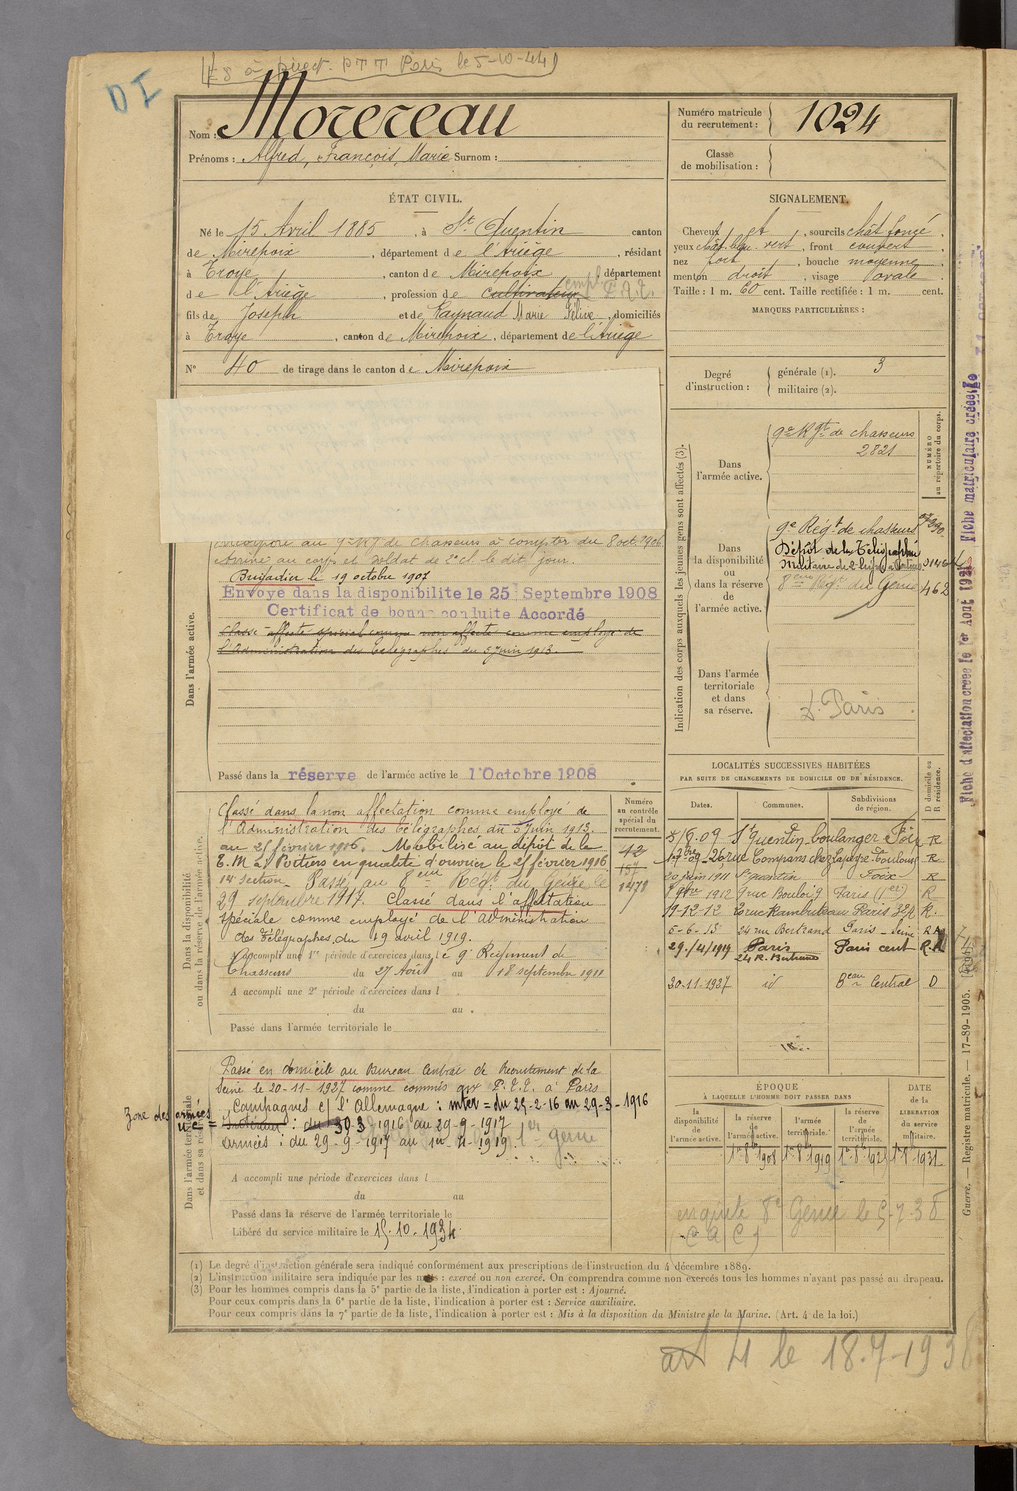 ES à Direct. PTT Paris le 5-10-44
DI
Nom : Morereau
Prénoms : Alfred, François, Marie Surnom :
Numéro matricule du recrutement : 1024
Classe de mobilisation :
ÉTAT CIVIL.
Né le 15 Avril 1885, à St Quentin canton
de Mirepoix, département de l'Ariège, résidant
à Troye, canton de Mirepoix, département
de l'Ariège, profession de cultivateur empl P.T.T.
fils de Joseph et de Raynaud Marie Félive, domiciliés
à Troye, canton de Mirepoix, département de l'Ariège
N° 40 de tirage dans le canton de Mirepoix
SIGNALEMENT.
Cheveux et, sourcils chât foncé,
yeux chât. bleu vert, front couvert,
nez fort, bouche moyenne,
menton droit, visage ovale.
Taille : 1 m. 60 cent. Taille rectifiée : 1 m. cent.
MARQUES PARTICULIÈRES :
Degré d'instruction : générale (1). 3
militaire (2).
Indication des corps auxquels les jeunes gens sont affectés (3).
NUMÉRO au répertoire du corps.
Dans l'armée active.
9e Rgt de chasseurs
2821
Dans la disponibilité ou dans la réserve de l'armée active.
9e Régt de chasseurs
Dépôt de la Télégraphie
Militaire de
8ème Régt du Génie 462
Dans l'armée territoriale et dans sa réserve.
D. Paris
Dans l'armée active.
Incorporé au 9e Rg de chasseurs à compter du 8 oct 1906
Arrivé au corps et soldat de 2e cl le dit jour.
Brigadier le 19 octobre 1907
Envoyé dans la disponibilité le 25 Septembre 1908
Certificat de bonne conduite Accordé
Classé affecté spécial comme non affecté comme employé de
l'Administration des Télégraphes du 5 juin 1913.
Passé dans la réserve de l'armée active le 1 Octobre 1908
Dans la disponibilité ou dans la réserve de l'armée active.
Numéro au contrôle spécial du recrutement.
42
157
1478
Classé dans la non affectation comme employé de
l'Administration des télégraphes du 5 juin 1913.
au 25 février 1916. Mobilisé au dépôt de la
T.M. de Poitiers en qualité d'ouvrier le 25 février 1916
14e section. Passé au 8ème Régt du Génie le
29 septembre 1917. Classé dans l'affectation
spéciale comme employé de l'Administration
des Télégraphes du 19 avril 1919.
A accompli une 1re période d'exercices dans le 9e Régiment de
Chasseurs du 27 Août au 18 septembre 1911
A accompli une 2e période d'exercices dans l
du au
Passé dans l'armée territoriale le
LOCALITÉS SUCCESSIVES HABITÉES
PAR SUITE DE CHANGEMENTS DE DOMICILE OU DE RÉSIDENCE.
Dates. Communes. Subdivisions de région. D domicile ou R résidence.
St Quentin boulanger Foix R
26 rue Compans chez Lapègre Toulouse R
20 juin 1911 St Quentin Foix R
7 9bre 1912 9 rue Bouloi 9 Paris (1er) R
11-12-12 20 rue Rambuteau Paris R.
6-6-13 24 rue Bertrand Paris - Seine R
29/4/1919 Paris 24 R. Bertrand Paris cent R.
30-11-1937 id Beau Central D
Dans l'armée territoriale et dans sa réserve.
Passé en domicile au Bureau Central de Recrutement de la
Seine le 20-11-1937 comme commis aux P.T.T. à Paris
Campagnes c/ l'Allemagne : inter = du 25-2-16 au 29-3-1916
Zone des armées
n.c = Intérieur : du 30-3 1916 au 29-9-1917
Armées : du 29-9-1917 au 19-4-1919 1er génie
A accompli une période d'exercices dans l
du au
Passé dans la réserve de l'armée territoriale le
Libéré du service militaire le 15-10-1934
ÉPOQUE À LAQUELLE L'HOMME DOIT PASSER DANS
DATE de la LIBÉRATION du service militaire.
la disponibilité de l'armée active.
la réserve de l'armée active.
l'armée territoriale.
la réserve de l'armée territoriale.
1er 8b 1908 1er 8b 1919 1er 8b 1925 1er 8b 1931
enquête 8e Génie le 5-7-38
(C A C)
(1) Le degré d'instruction générale sera indiqué conformément aux prescriptions de l'instruction du 4 décembre 1889.
(2) L'instruction militaire sera indiquée par les mots : exercé ou non exercé. On comprendra comme non exercés tous les hommes n'ayant pas passé au drapeau.
(3) Pour les hommes compris dans la 5e partie de la liste, l'indication à porter est : Ajourné.
Pour ceux compris dans la 6e partie de la liste, l'indication à porter est : Service auxiliaire.
Pour ceux compris dans la 7e partie de la liste, l'indication à porter est : Mis à la disposition du Ministre de la Marine. (Art. 4 de la loi.)
art 4 le 18-7-1938
Fiche d'affectation créée le 1er Août 1921 Fiche matriculaire créée le
Guerre. Registre matricule. — 17-89-1905.